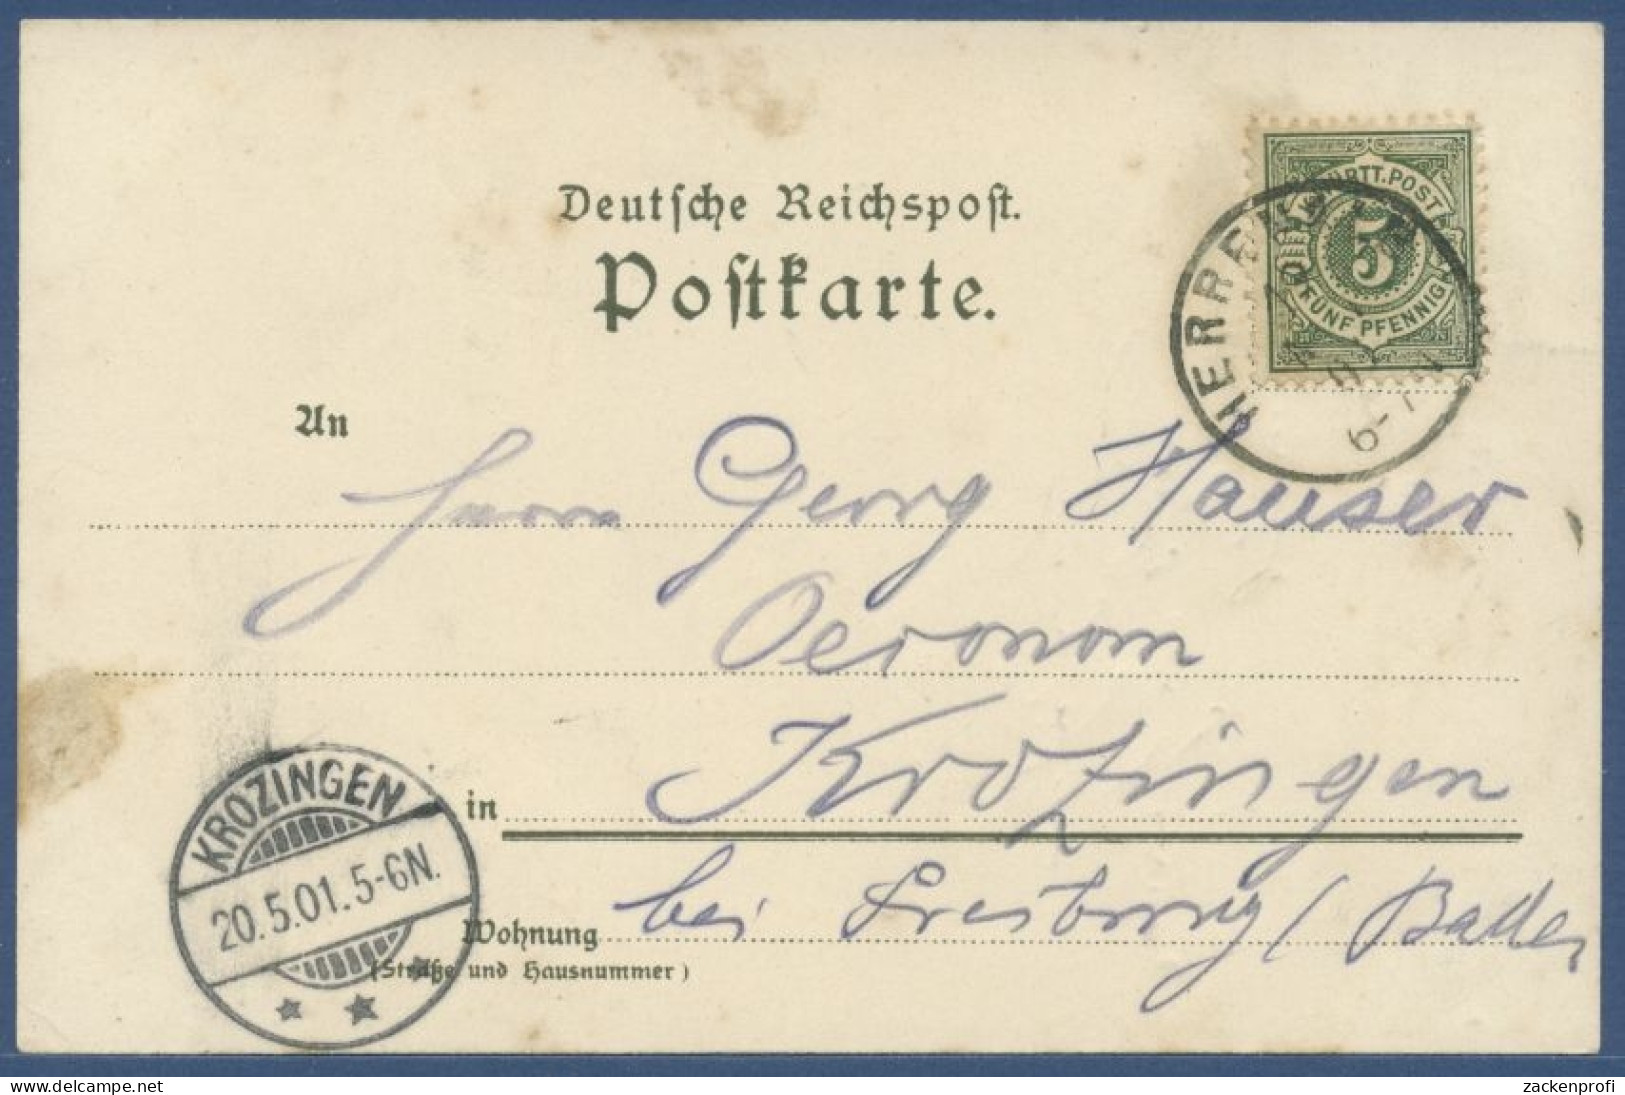 Deutsche Reichspost.
Postkarte.
WÜRTT. POST
5
FÜNF PFENNIG
HERRE
6-7
An
Herrn Georg Hauser
Oeconom
in Krozingen
bei Freiburg / Baden
Wohnung
(Straße und Hausnummer)
KROZINGEN
20.5.01.5-6N.
delcampe.net
zackenprofi